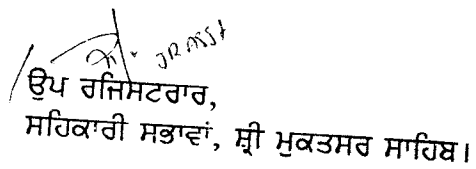 ਉਪ ਰਜਿਸਟਰਾਰ,
ਸਹਿਕਾਰੀ ਸਭਾਵਾਂ, ਸ਼੍ਰੀ ਮੁਕਤਸਰ ਸਾਹਿਬ।